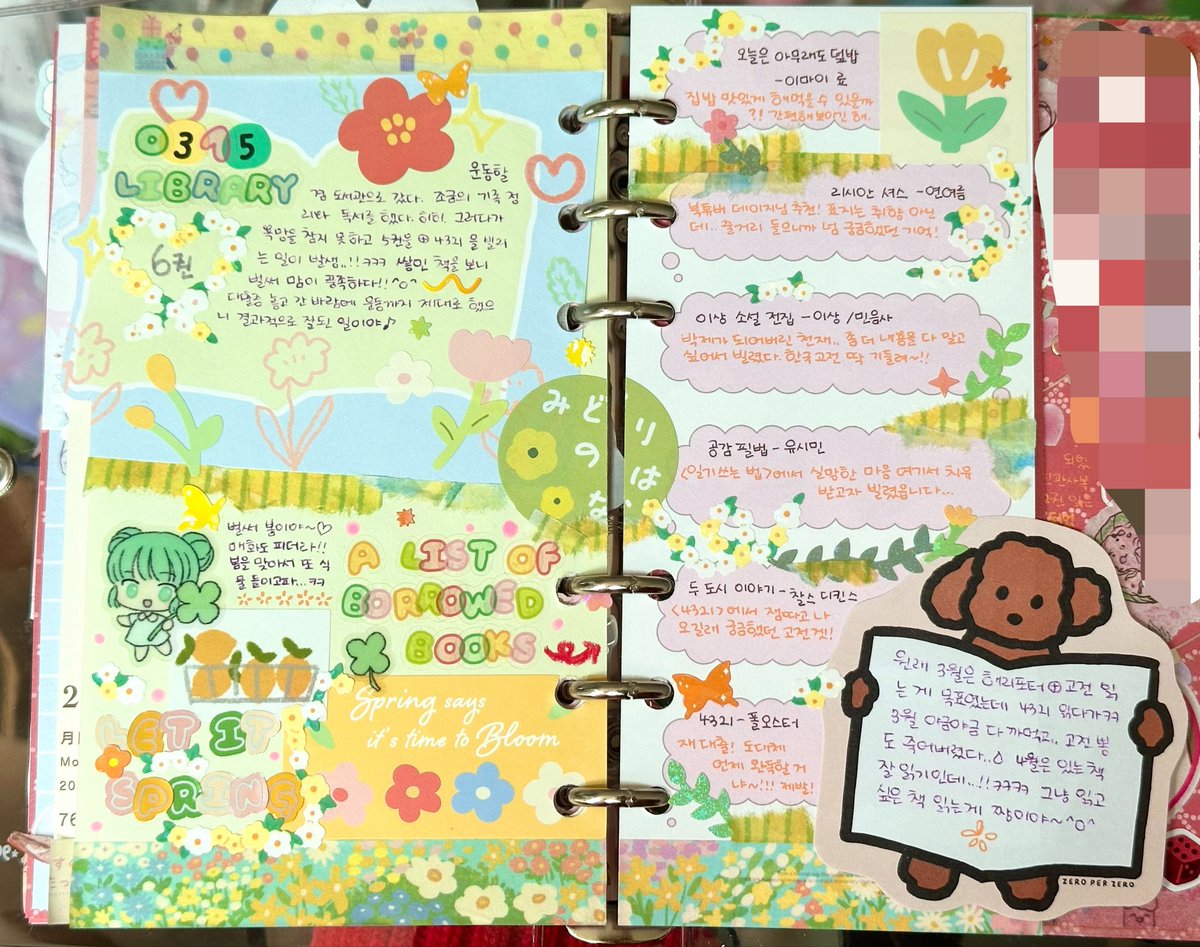 0395
LIBRARY
운동할
겸 도서관으로 갔다. 조금의 가족 정
리타 독서를 했다. 히히. 그러다가
욕망을 참지 못하고 5권을 ⊕ 4321 을 빌리
는 일이 발생..!!ㅋㅋㅋ 쌓인 책을 보니
벌써 맘이 풀족하다!! ^o^
대출증 놓고 간 바람에 운동까지 제대로 했으
니 결과적으로 잘된 일이야♪
6권
벌써 봄이야~♡
매화도 피더라!!
봄을 맞아서 또 식
물 들이고파...ㅋㅋ
A LIST OF
BORROWED
BOOKS
LET IT
SPRING
Spring says
it's time to Bloom
みどりは
のな
오늘은 아무래도 덮밥
-이마이 료
집밥 맛있게 해먹을 수 있을까
?! 간편해보이긴 해.
리시안 셔스 -연여름
북튜버 데이지님 추천! 표지는 취향 아닌
데.. 줄거리 들으니까 넘 궁금했던 기억!
이상 소설 전집 -이상 /민음사
박제가 되어버린 천재.. 좀 더 내용을 다 알고
싶어서 빌렸다. 한국고전 딱 기둘려~!!
공감 필법 - 유시민
<일기쓰는 법>에서 실망한 마음 여기서 치유
받고자 빌렸읍니다...
두 도시 이야기 - 찰스 디킨스
<4321>에서 잼따고 나
오길래 궁금했던 고전겟!!
4321 - 폴오스터
재대출! 도대체
언제 완독할 거
냐~!!! 제발!
원래 3월은 해리포터 ⊕ 고전 읽
는 게 목표였는데 4321 읽다가ㅋㅋ
3월 야금야금 다 까먹고.. 고전 뽕
도 죽어버렸다..ㅎ 4월은 있는 책
잘 읽기인데..!!ㅋㅋㅋ 그냥 읽고
싶은 책 읽는게 짱이야~^o^
ZERO PER ZERO